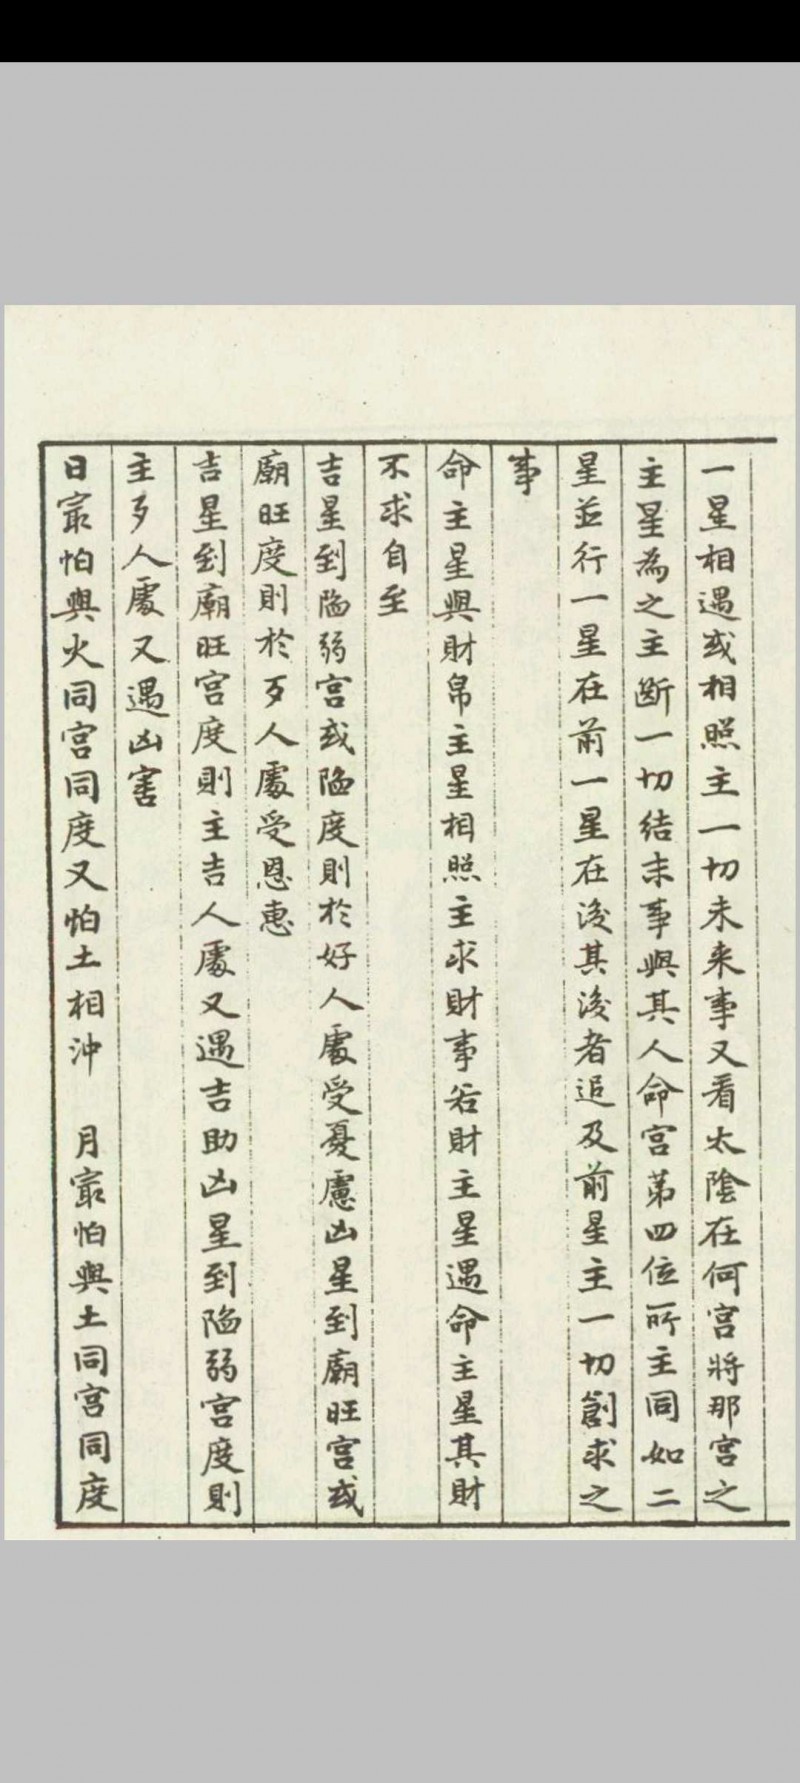 一星相遇或相照主一切未来事又看太陰在何宮將那宮之
主星為之主斷一切結末事與其人命宮第四位所主同如二
星並行一星在前一星在後其後者追及前星主一切創求之
事
命主星與財帛主星相照主求財事若財主星遇命主星其財
不求自至
吉星到陥弱宮或陥度則於好人處受憂慮凶星到廟旺宮或
廟旺度則於歹人處受恩惠
吉星到廟旺宮度則主吉人處又遇吉助凶星到陥弱宮度則
主歹人處又遇凶害
日㝡怕與火同宮同度又怕土相沖　月㝡怕與土同宮同度